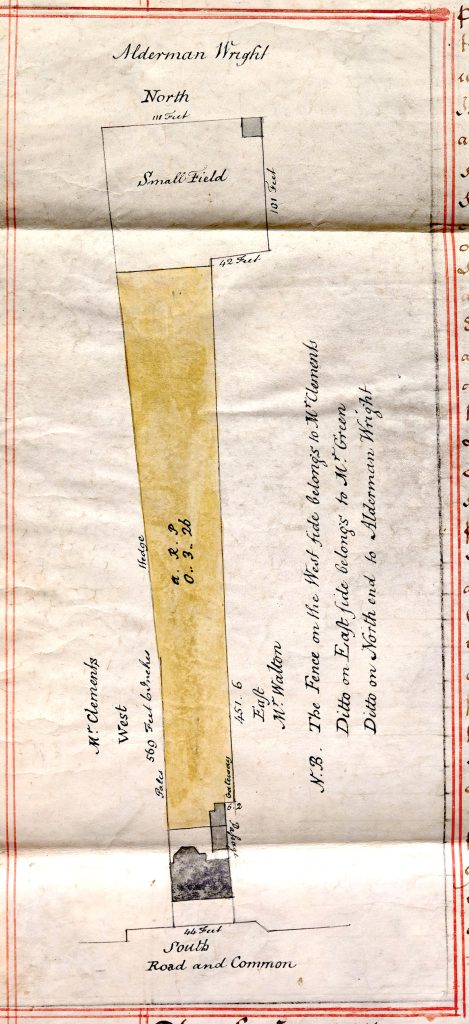 Alderman Wright
North
111 Feet
Small Field
101 Feet
42 Feet
Hedge
a. R. P
0.. 3.. 26
Mr. Clements
West
569 Feet 6 Inches
Pales
451. 6
East
Mr. Walton
Gateway
N.B. The Fence on the West side belongs to Mr. Clements
Ditto on East side belongs to Mr. Green
Ditto on North end to Alderman Wright
44 Feet
South
Road and Common